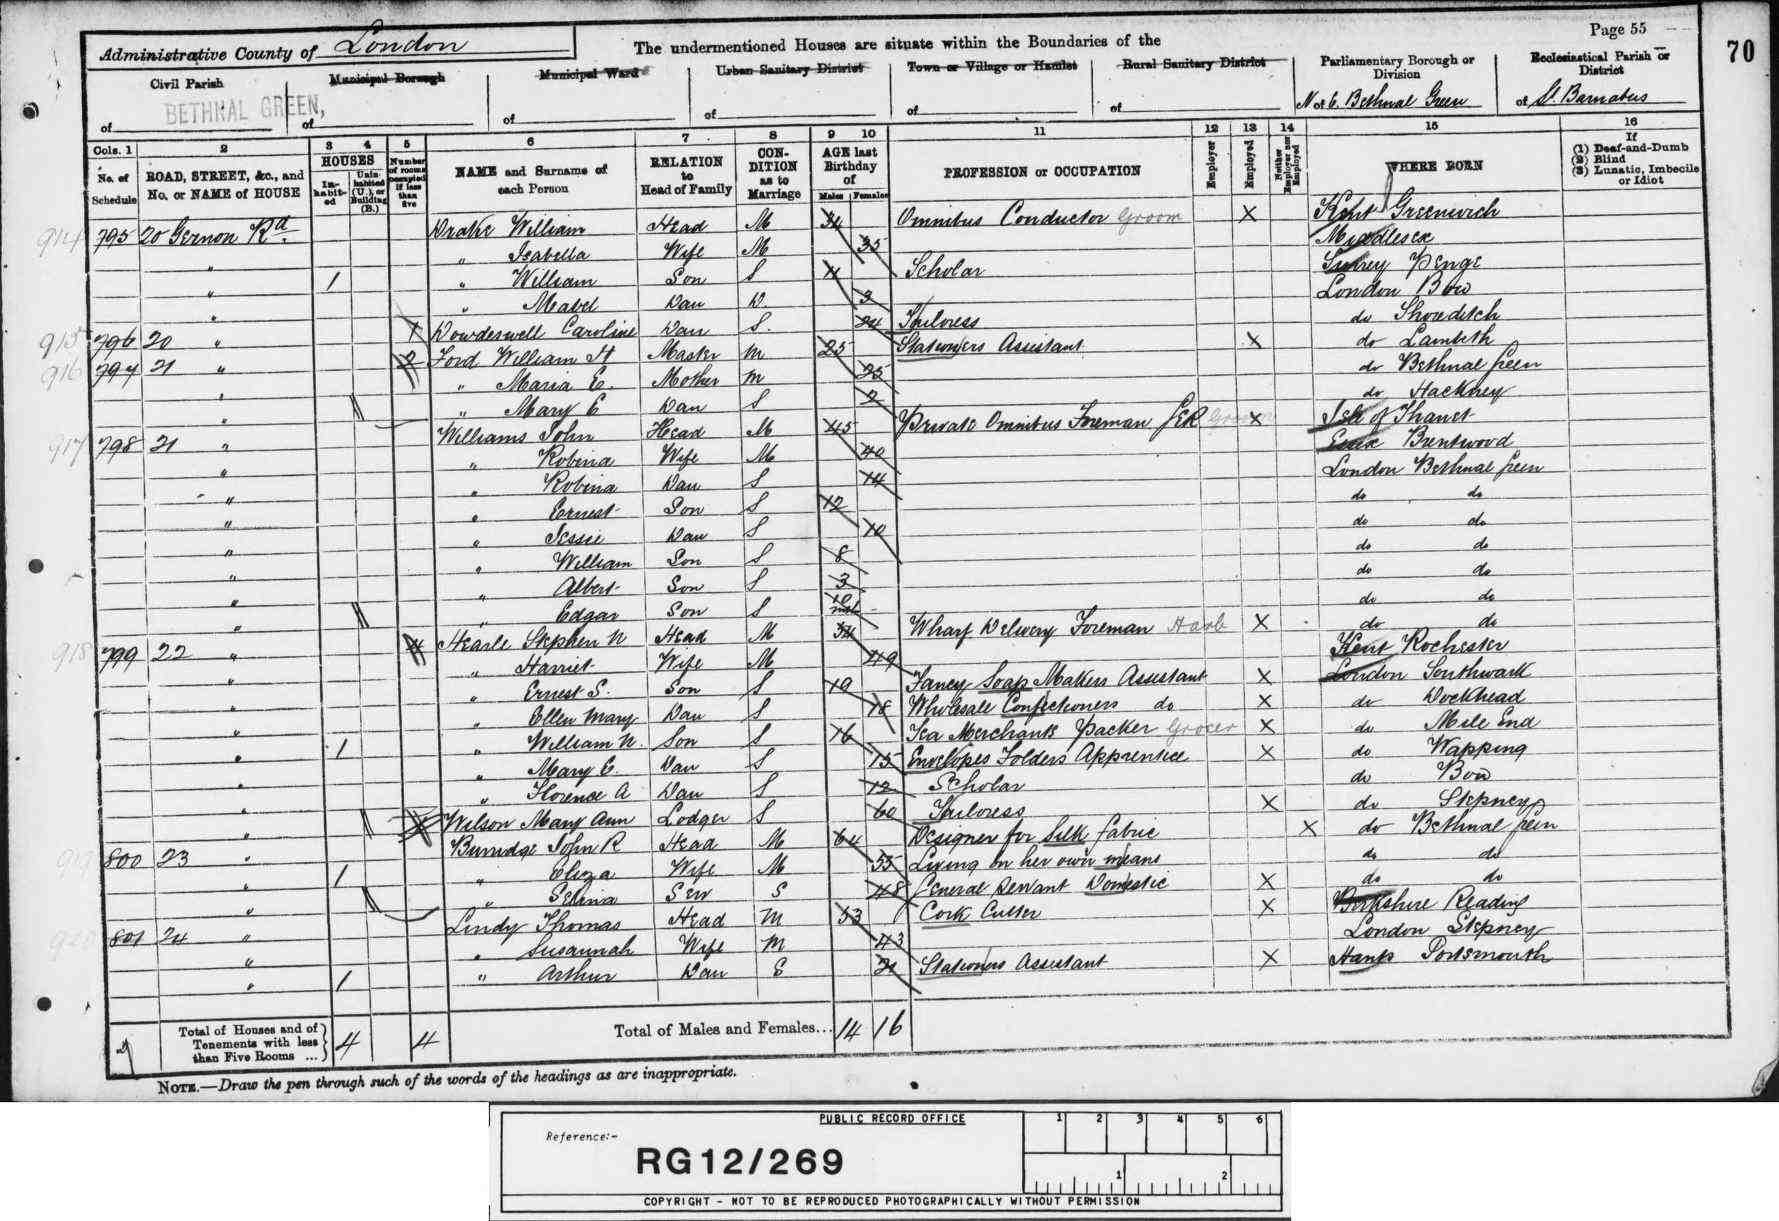 Page 55
70
Administrative County of London
The undermentioned Houses are situate within the Boundaries of the
Civil Parish
Municipal Borough
Municipal Ward
Urban Sanitary District
Town or Village or Hamlet
Rural Sanitary District
Parliamentary Borough or Division
Ecclesiastical Parish or District
of BETHNAL GREEN,
of
of
of
of
of
N of E. Bethnal Green
of St. Barnabas
Cols. 1 2 3 4 5 6 7 8 9 10 11 12 13 14 15 16
No. of Schedule
ROAD, STREET, &c., and No. or NAME of HOUSE
HOUSES
Inhabited
Uninhabited (U.), or Building (B.)
Number of rooms occupied if less than five
NAME and Surname of each Person
RELATION to Head of Family
CONDITION as to Marriage
AGE last Birthday of
Males Females
PROFESSION or OCCUPATION
Employer
Employed
Neither Employer nor Employed
WHERE BORN
If
(1) Deaf-and-Dumb
(2) Blind
(3) Lunatic, Imbecile or Idiot
914 795 20 Gernon Rd. Drake William Head M 34 Omnibus Conductor Groom X Kent Greenwich
" " Isabella Wife M 35 Middlesex
" 1 " William Son S 11 Scholar Surrey Penge
" " Mabel Dau D. 3 London Bow
915 796 20 " 1 Dowdeswell Caroline Dau S. 24 Tailoress do Shoreditch
916 797 21 " 2 Ford William H Master M 25 Stationers Assistant X do Lambeth
" " Maria E. Mother M 25 do Bethnal Green
" " Mary E Dau S 2 do Hackney
917 798 21 " Williams John Head M 45 Private Omnibus Foreman GER Groom X Isle of Thanet
" " Robina Wife M 40 Essex Brentwood
" " Robina Dau S 14 London Bethnal Green
" " Ernest Son S 12 do do
" " Jessie Dau S 10 do do
" " William Son S 8 do do
" " Albert Son S 3 do do
" " Edgar Son S 10 mos do do
918 799 22 " 4 Hearle Stephen N Head M Wharf Delivery Foreman X do do
" " Harriet Wife M 49 Kent Rochester
" " Ernest S. Son S 19 Fancy Soap Makers Assistant X London Southwark
" " Ellen Mary Dau S 18 Wholesale Confectioners do X do Dockhead
" 1 " William N. Son S 16 Tea Merchants Packer Grocer X do Mile End
" " Mary E. Dau S 15 Envelopes Folders Apprentice X do Wapping
" " Florence A Dau S 12 Scholar do Bow
" Wilson Mary Ann Lodger S 60 Tailoress X do Stepney
919 800 23 " Burridge John R Head M 64 Designer for Silk fabric X do Bethnal Green
" 1 " Eliza Wife M 55 Living on her own means do do
" " Selina Serv S 48 General Servant Domestic X do do
920 801 24 " Lindy Thomas Head M 53 Cork Cutter X Berkshire Reading
" " Susannah Wife M 43 London Stepney
" 1 " Arthur Dau S 21 Stationers Assistant X Hants Portsmouth
7 Total of Houses and of Tenements with less than Five Rooms ... 4 4 Total of Males and Females... 14 16
NOTE.—Draw the pen through such of the words of the headings as are inappropriate.
PUBLIC RECORD OFFICE
1 2 3 4 5 6
Reference:-
RG 12/269
1 2
COPYRIGHT - NOT TO BE REPRODUCED PHOTOGRAPHICALLY WITHOUT PERMISSION